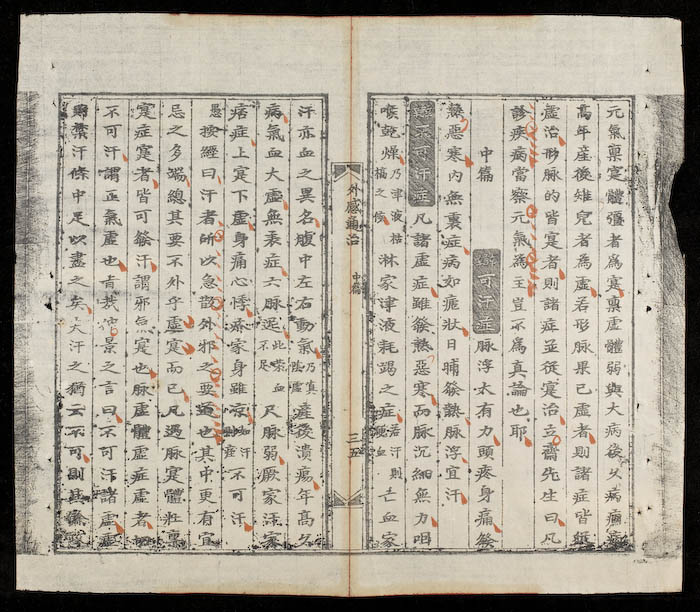 元氣稟寔體彊者為寔稟虛體弱與大病後久病
高年產後雉寃者為虛若形脉果已虛者則諸症皆從
虛治形脉的皆寔者則諸症並從寔治立齋先生曰凡
診疾病當察元氣為王豈不為真論也耶
中篇
可汗症 脉浮大有力頭疼身痛發
熱惡寒內無裏症病如瘧狀日晡發熱脉浮宜汗
不可汗症 凡諸虛症雖發熱惡寒而脉沉細無力咽
喉乾燥乃津液枯槁之候淋家津液耗竭之症若汗則便血亡血家
外感通治 中篇 三五
汗亦血之異名腹中左右動氣乃真陰虛產後潰瘍年高久
病氣血大虛無表症六脉遲此榮血不足尺脉弱厥家汪家
痞症上寔下虛身痛心悸瘀家身雖凉不可汗
愚按經曰汗者所以急散外邪之要道也其中更有宜
忌之多端總其要不外乎虛寔而已凡遇脉寔體壯稟
寔症寔者皆可發汗謂邪氣寔也脉虛體虛症虛者切
不可汗謂正氣虛也旨哉仲景之言曰不可汗諸虛
汗條中足以盡之矣夫汗之猶云不可則其餘